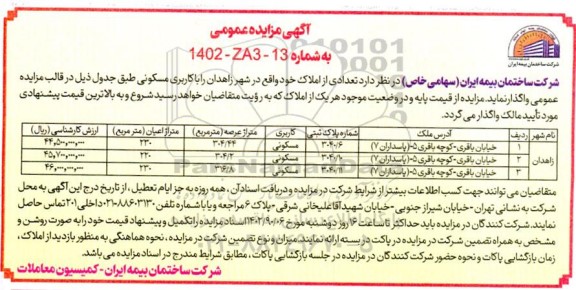 آگهی مزایده عمومی
به شماره 13 - ZA3 - 1402
شرکت ساختمان بیمه ایران
شرکت ساختمان بیمه ایران (سهامی خاص) در نظر دارد تعدادی از املاک خود واقع در شهر زاهدان را با کاربری مسکونی طبق جدول ذیل در قالب مزایده
عمومی واگذار نماید. مزایده از قیمت پایه و در وضعیت موجود هر یک از املاک که به رؤیت متقاضیان خواهد رسید شروع و به بالاترین قیمت پیشنهادی
مورد تأیید مالک واگذار می گردد.
نام شهر ردیف آدرس ملک شماره پلاک ثبتی کاربری متراژ عرصه (متر مربع) متراژ اعیان (متر مربع) ارزش کارشناسی (ریال)
زاهدان
۱ خیابان باقری-کوچه باقری ۵-(پاسداران ۷) مسکونی ۳۰۴/۴۴ ۲۳۰
۲ خیابان باقری-کوچه باقری ۵-(پاسداران ۷) مسکونی ۲۲۰
۳ خیابان باقری-کوچه باقری ۵-(پاسداران ۷) مسکونی ۲۳۰
متقاضیان می توانند جهت کسب اطلاعات بیشتر از شرایط شرکت در مزایده و دریافت اسناد آن، همه روزه به جز ایام تعطیل، از تاریخ درج این آگهی به محل
شرکت به نشانی تهران - خیابان شیراز جنوبی - خیابان شهید آقا علیخانی شرقی - پلاک ۶ مراجعه و یا با شماره تلفن ۸۸۶۰۳۱۳۰-۰۲۱ داخلی ۲۰۱ تماس حاصل
نمایند. شرکت کنندگان در مزایده باید حداکثر تا ساعت ۱۶ روز دوشنبه مورخ ۱۴۰۲/۹/۰۶ اسناد مزایده را تکمیل و پیشنهاد قیمت خود را به صورت روشن و
مشخص به همراه تضمین شرکت در مزایده در پاکت در بسته ارائه نمایند. میزان و نوع تضمین شرکت در مزایده، نحوه هماهنگی به منظور بازدید از املاک،
زمان بازگشایی پاکات و نحوه حضور شرکت کنندگان در مزایده در جلسه بازگشایی پاکات، مطابق شرایط مندرج در اسناد مزایده می باشد.
شرکت ساختمان بیمه ایران - کمیسیون معاملات